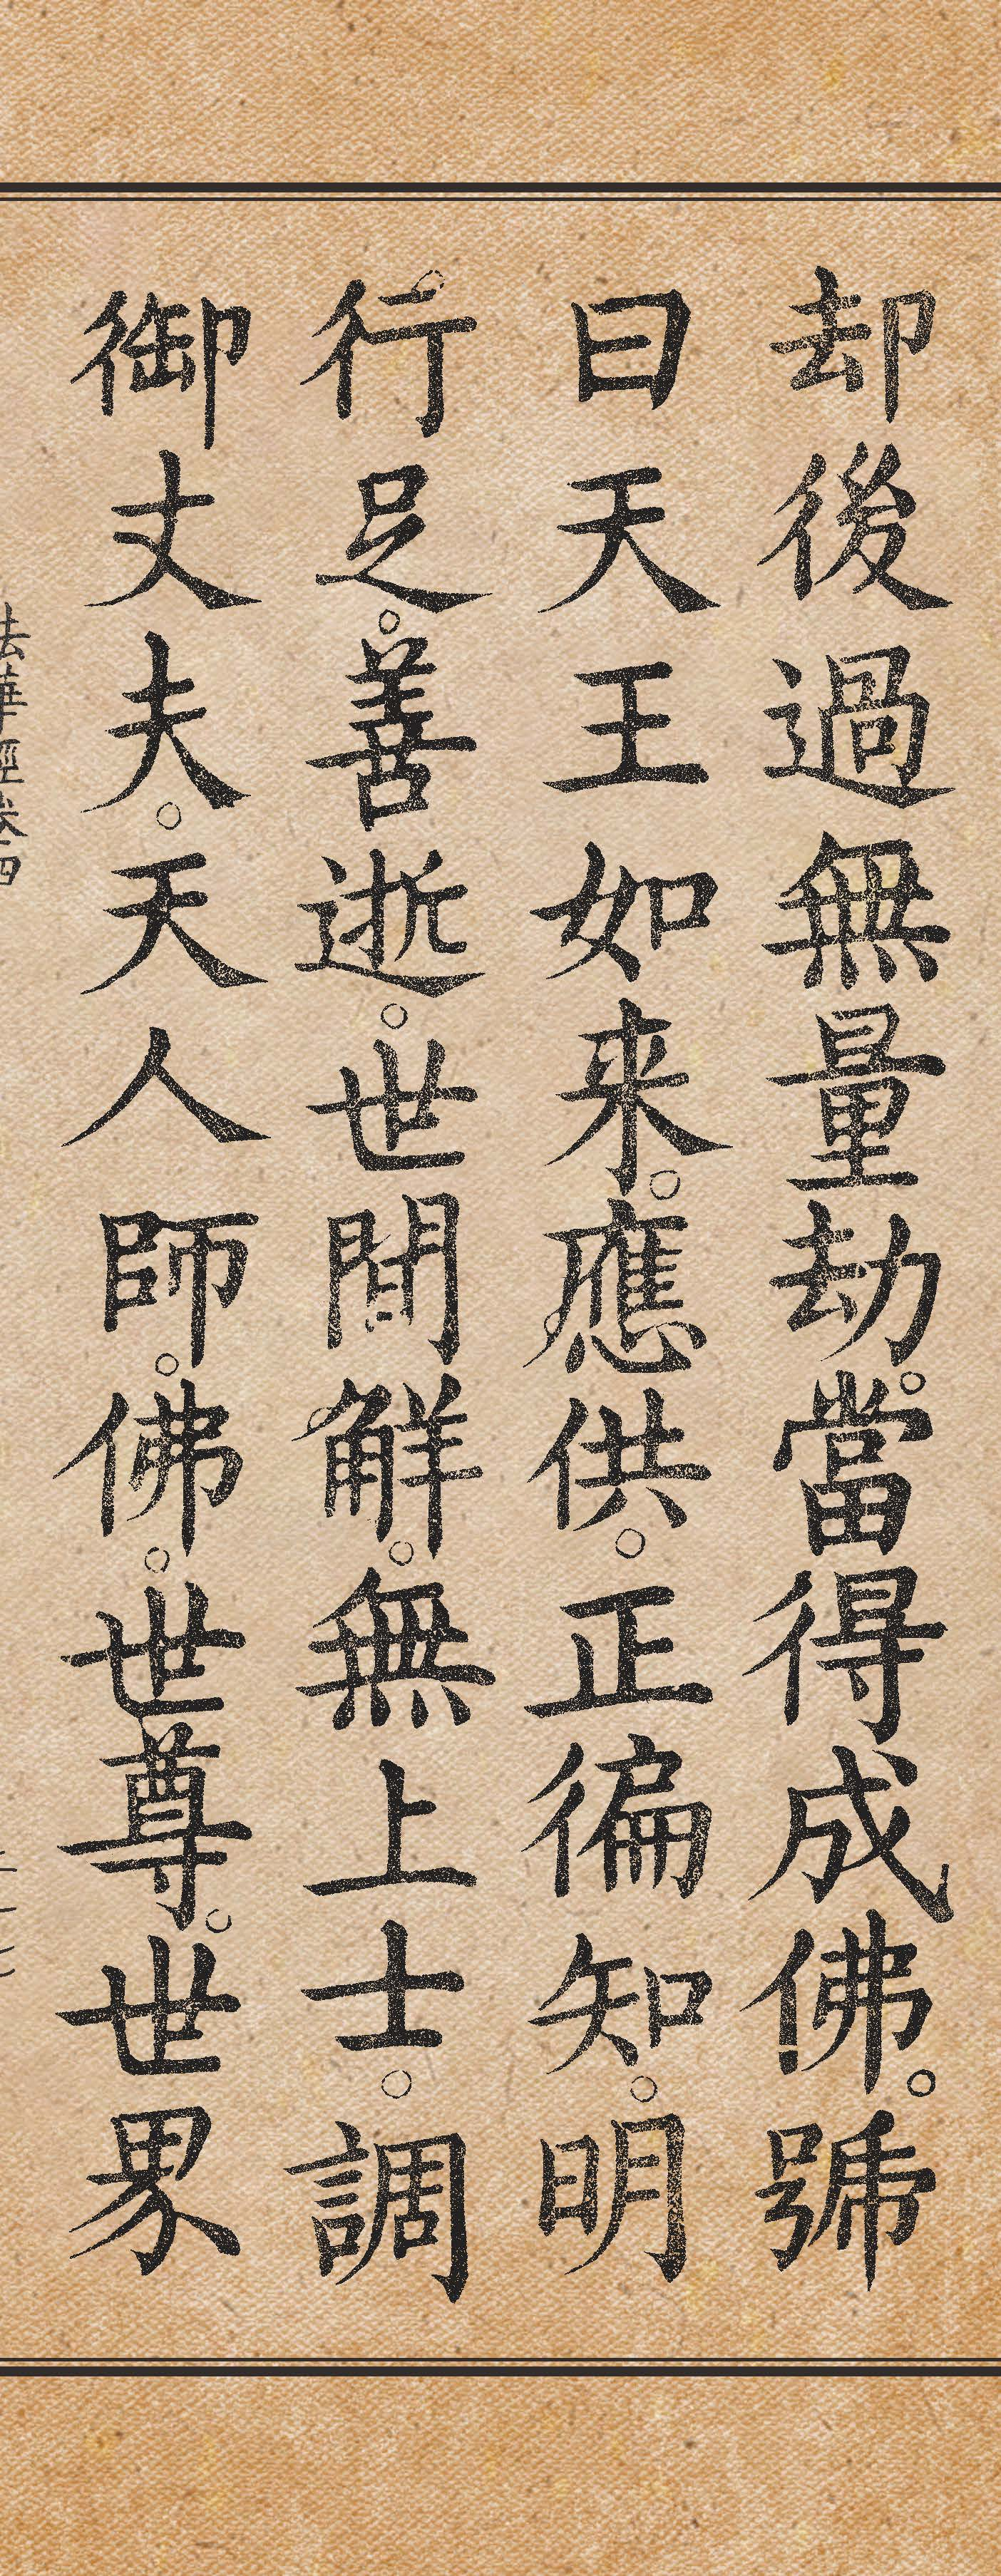 却後過無量劫。當得成佛。號
曰天王如来。應供。正徧知。明
行足。善逝。世間解。無上士。調
御丈夫。天人師。佛。世尊。世界
法華經卷四